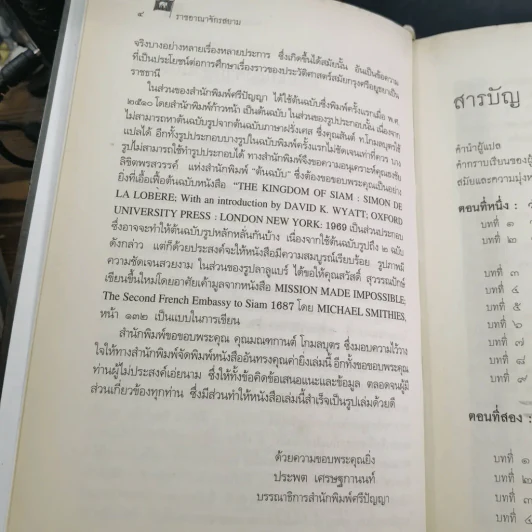 ๔
ราชอาณาจักรสยาม
จริงบางอย่างหลายเรื่องหลายประการ ซึ่งเกิดขึ้นได้สมัยนั้น อันเป็นข้อความ
ที่เป็นประโยชน์ต่อการศึกษาเรื่องราวของประวัติศาสตร์สมัยกรุงศรีอยุธยาเป็น
ราชธานี
ในส่วนของสำนักพิมพ์ศรีปัญญา ได้ใช้ต้นฉบับซึ่งพิมพ์ครั้งแรกเมื่อ พ.ศ.
๒๕๑๐ โดยสำนักพิมพ์ก้าวหน้า เป็นต้นฉบับ ในส่วนของรูปประกอบนั้น เนื่องจาก
ไม่สามารถหาต้นฉบับรูปจากต้นฉบับภาษาฝรั่งเศส ซึ่งคุณสันต์ ท.โกมลบุตรใช้
แปลได้ อีกทั้งรูปประกอบบางรูปในฉบับพิมพ์ครั้งแรกไม่ชัดเจนเท่าที่ควร บาง
รูปไม่สามารถใช้ทำรูปประกอบได้ ทางสำนักพิมพ์จึงขอความอนุเคราะห์คุณธงชัย
ลิขิตพรสวรรค์ แห่งสำนักพิมพ์ “ต้นฉบับ” ซึ่งต้องขอขอบพระคุณเป็นอย่าง
ยิ่งที่เอื้อเฟื้อต้นฉบับหนังสือ “THE KINGDOM OF SIAM : SIMON DE
LA LOBERE; With an introduction by DAVID K. WYATT; OXFORD
UNIVERSITY PRESS : LONDON NEW YORK: 1969 เป็นส่วนประกอบ
ซึ่งอาจจะทำให้ต้นฉบับรูปหลักหลั่นกันบ้าง เนื่องจากใช้ต้นฉบับรูปถึง ๒ ฉบับ
ดังกล่าว แต่ก็ด้วยประสงค์จะให้หนังสือมีความสมบูรณ์เรียบร้อย รูปภาพมี
ความชัดเจนสวยงาม ในส่วนของรูปลาลูแบร์ ได้ขอให้คุณสวัสดิ์ สุวรรณปักษ์
เขียนขึ้นใหม่โดยอาศัยเค้ามูลจากหนังสือ MISSION MADE IMPOSSIBLE;
The Second French Embassy to Siam 1687 โดย MICHAEL SMITHIES,
หน้า ๑๓๒ เป็นแบบในการเขียน
สำนักพิมพ์ขอขอบพระคุณ คุณมณฑกานต์ โกมลบุตร ซึ่งมอบความไว้วาง
ใจให้ทางสำนักพิมพ์จัดพิมพ์หนังสืออันทรงคุณค่ายิ่งเล่มนี้ อีกทั้งขอขอบพระคุณ
ท่านผู้ไม่ประสงค์เอ่ยนาม ซึ่งให้ทั้งข้อคิดข้อเสนอแนะและข้อมูล ตลอดจนผู้มี
ส่วนเกี่ยวข้องทุกท่าน ซึ่งมีส่วนทำให้หนังสือเล่มนี้สำเร็จเป็นรูปเล่มด้วยดี
ด้วยความขอบพระคุณยิ่ง
ประพต เศรษฐกานนท์
บรรณาธิการสำนักพิมพ์ศรีปัญญา
สารบัญ
คำนำผู้แปล
คำกราบเรียนของผู้
สมัยและความมุ่งห
ตอนที่หนึ่ง :
บทที่ ๑
บทที่ ๒
บทที่ ๓
บทที่ ๔
บทที่ ๕
บทที่ ๖
บทที่ ๗
บทที่ ๘
บทที่ ๙
ตอนที่สอง :
บทที่ ๑
บทที่ ๒
บทที่ ๓
บทที่ ๔